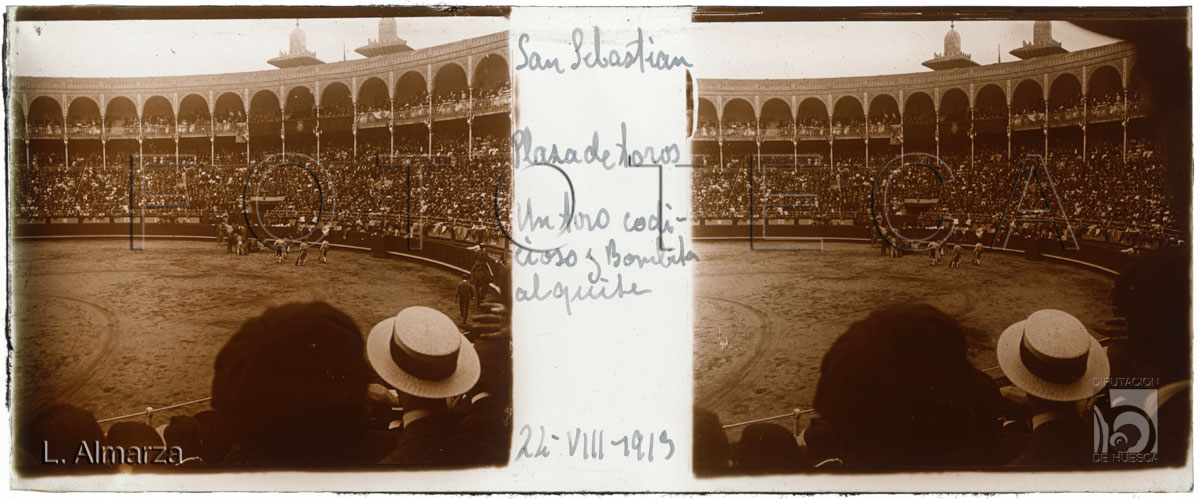 San Sebastian
Plaza de toros
Un toro codi-
cioso y Bombita
al quite
24-VIII-1913
FOTOTECA
L. Almarza
DIPUTACION
DE HUESCA